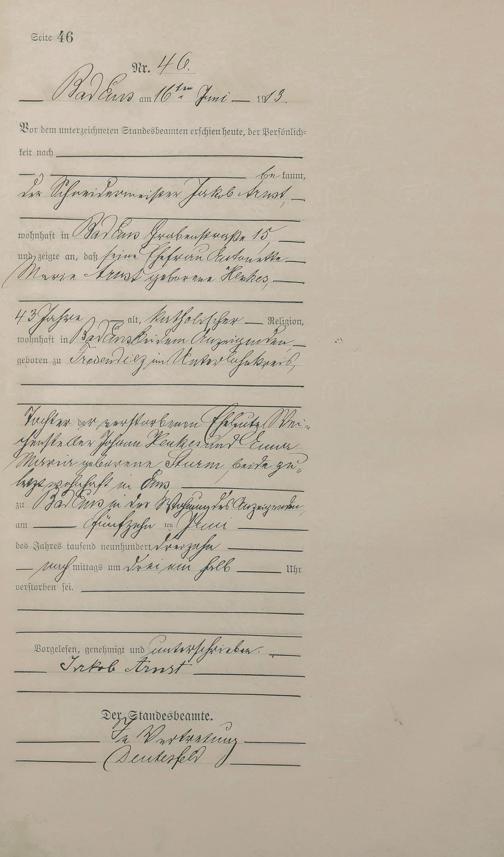 Seite 46
Nr. 46.
Bad Ems am 16ten Juni 1913.
Vor dem unterzeichneten Standesbeamten erschien heute, der Persönlich-
keit nach
be kannt,
der Schreidermeister Jakob Arnst,
wohnhaft in Bad Ems Grabenstraße 15,
und zeigte an, daß seine Ehefrau Antonette
Maria Arnst geborene Henkes,
43 Jahre alt, katholischer Religion,
wohnhaft in Bad Ems bei dem Anzeigenden
geboren zu im Unterlahnkreis,
Tochter der verstorbenen Eheleute Wei-
chensteller Johann Henkes und Anna
Maria geborene Sturm, beide zu-
letzt wohnhaft in Ems
zu Bad Ems in der Wohnung des Anzeigenden,
am fünfzehn ten Juni
des Jahres tausend neunhundert dreizehn
nach mittags um drei ein halb Uhr
verstorben sei.
Vorgelesen, genehmigt und unterschrieben.
Jakob Arnst
Der Standesbeamte.
In Vertretung